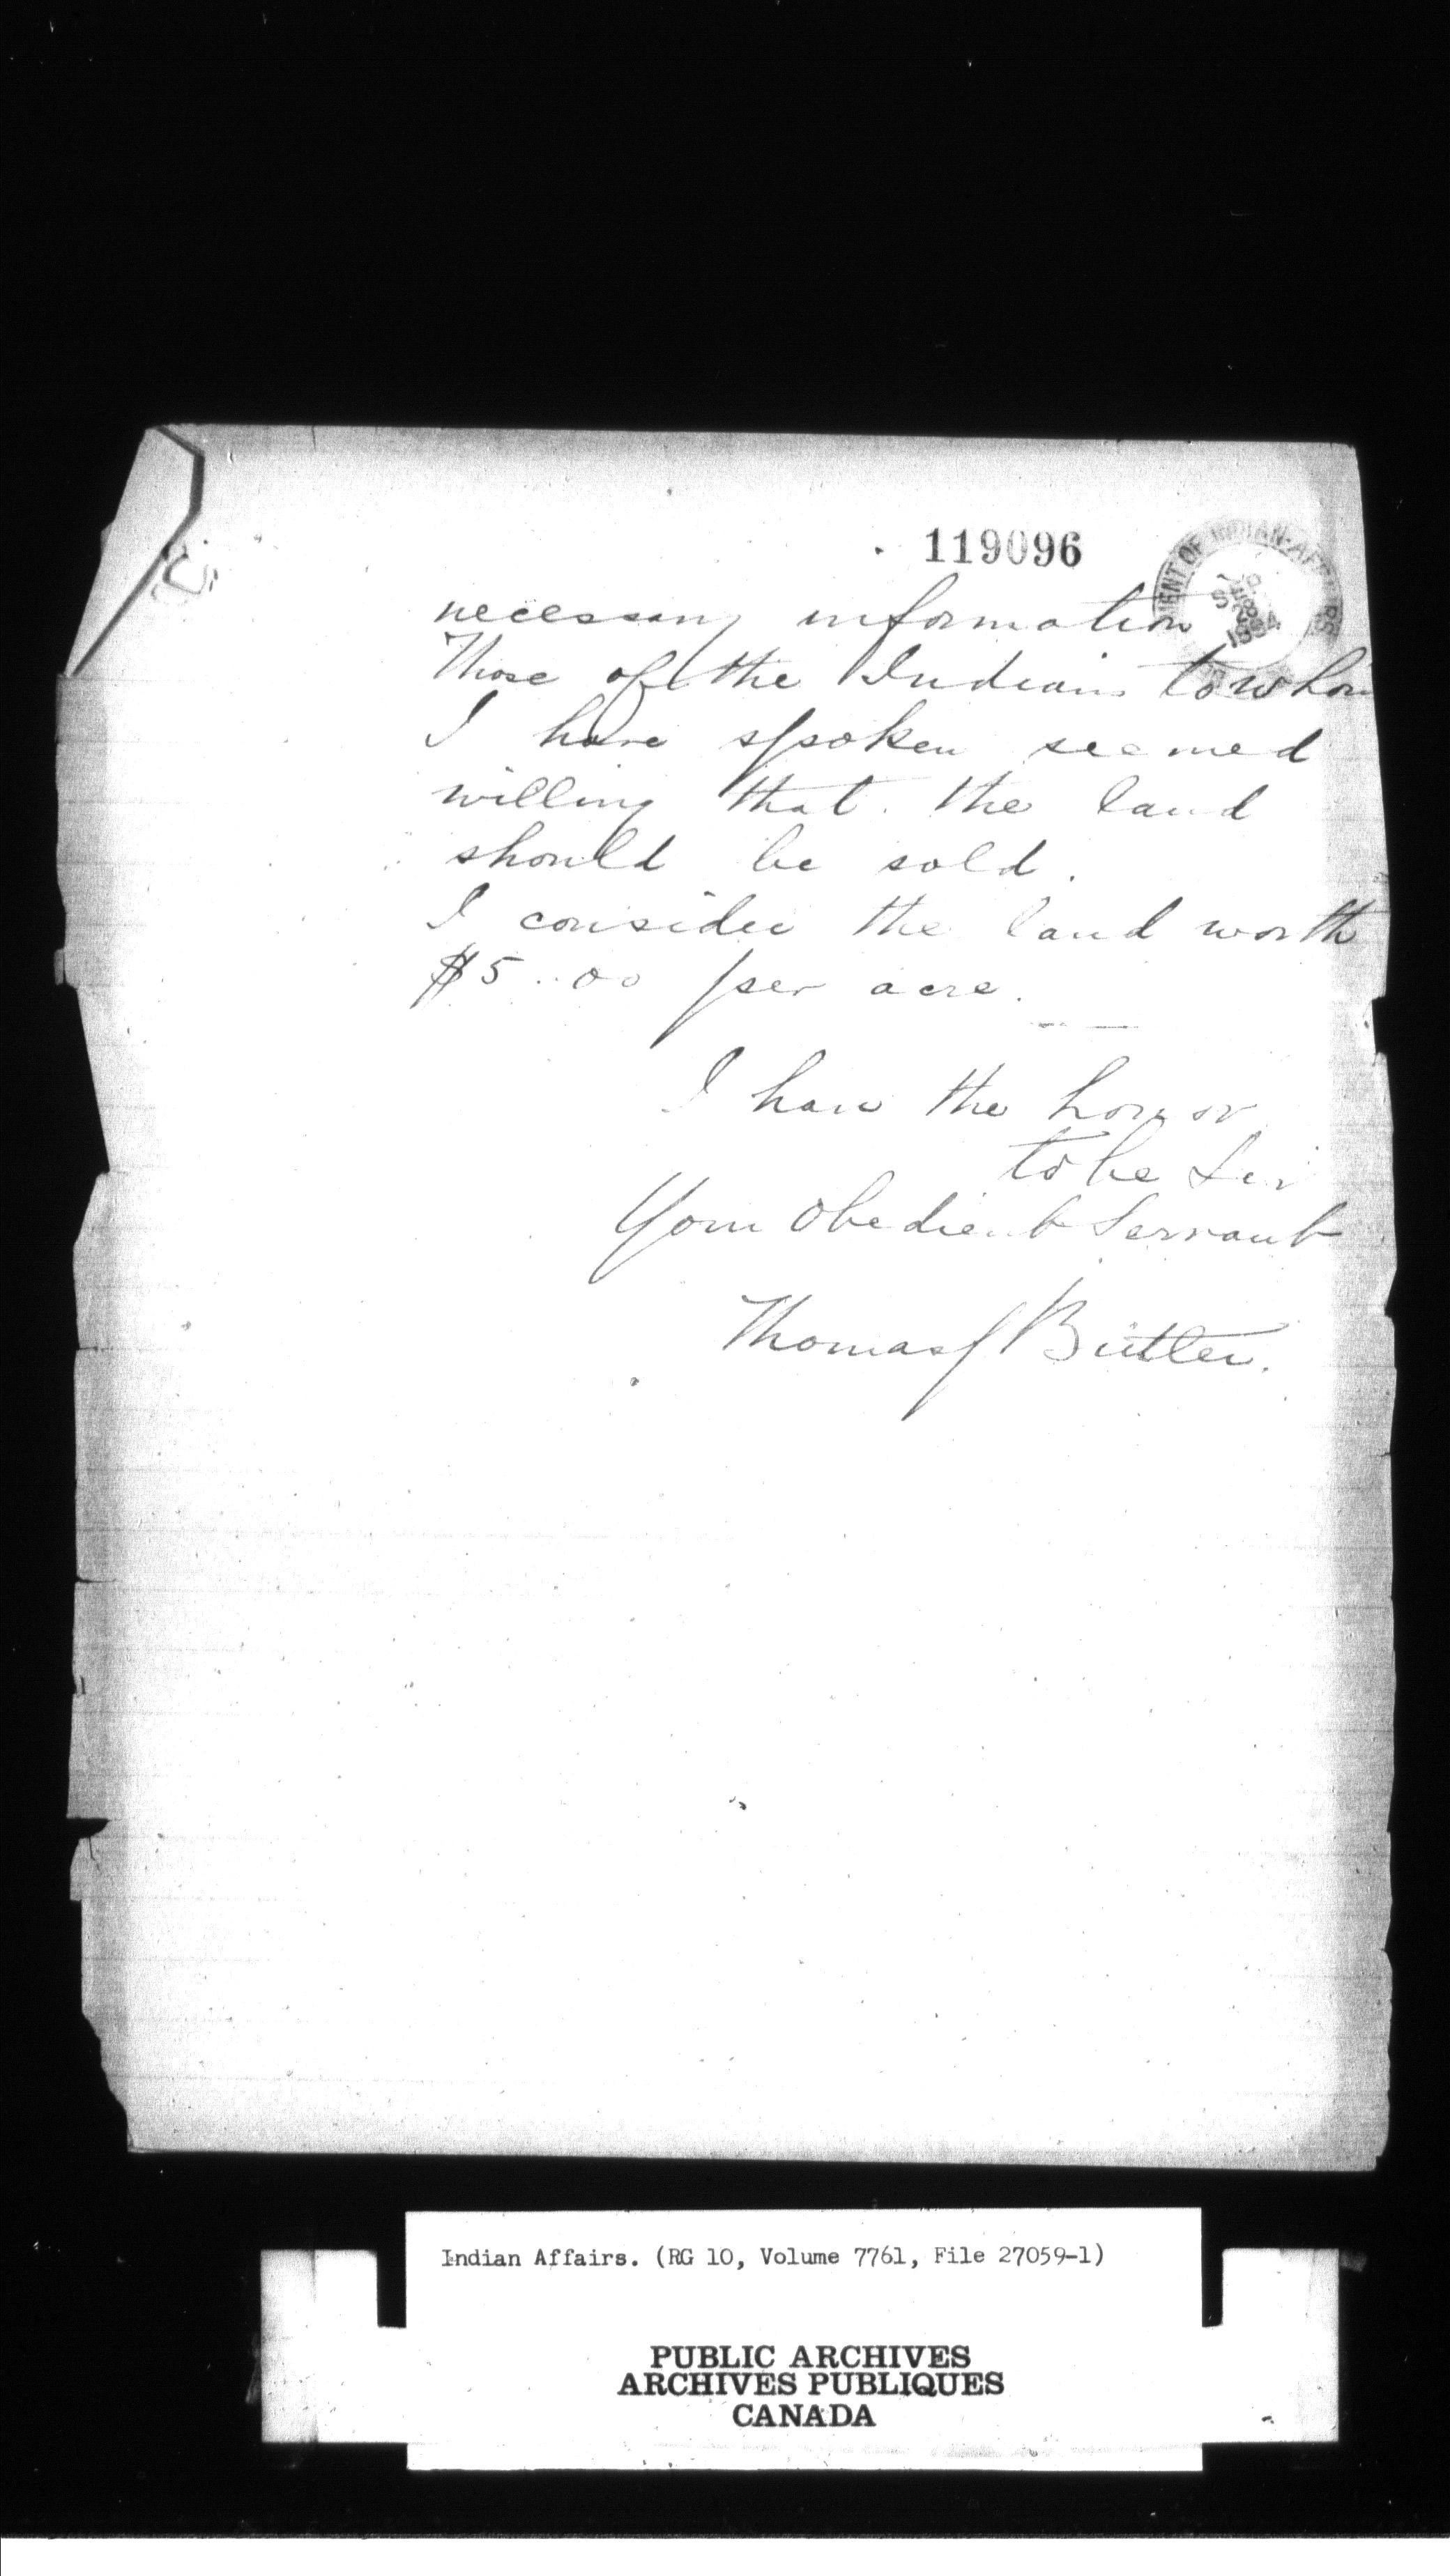 119096
DEPARTMENT OF INDIAN AFFAIRS
1894
necessary information
Those of the Indians to whom
I have spoken seemed
willing that the land
should be sold.
I consider the land worth
$5.00 per acre.
I have the honor
to be Sir
Your Obedient Servant
Thomas Butler.
Indian Affairs. (RG 10, Volume 7761, File 27059-1)
PUBLIC ARCHIVES
ARCHIVES PUBLIQUES
CANADA